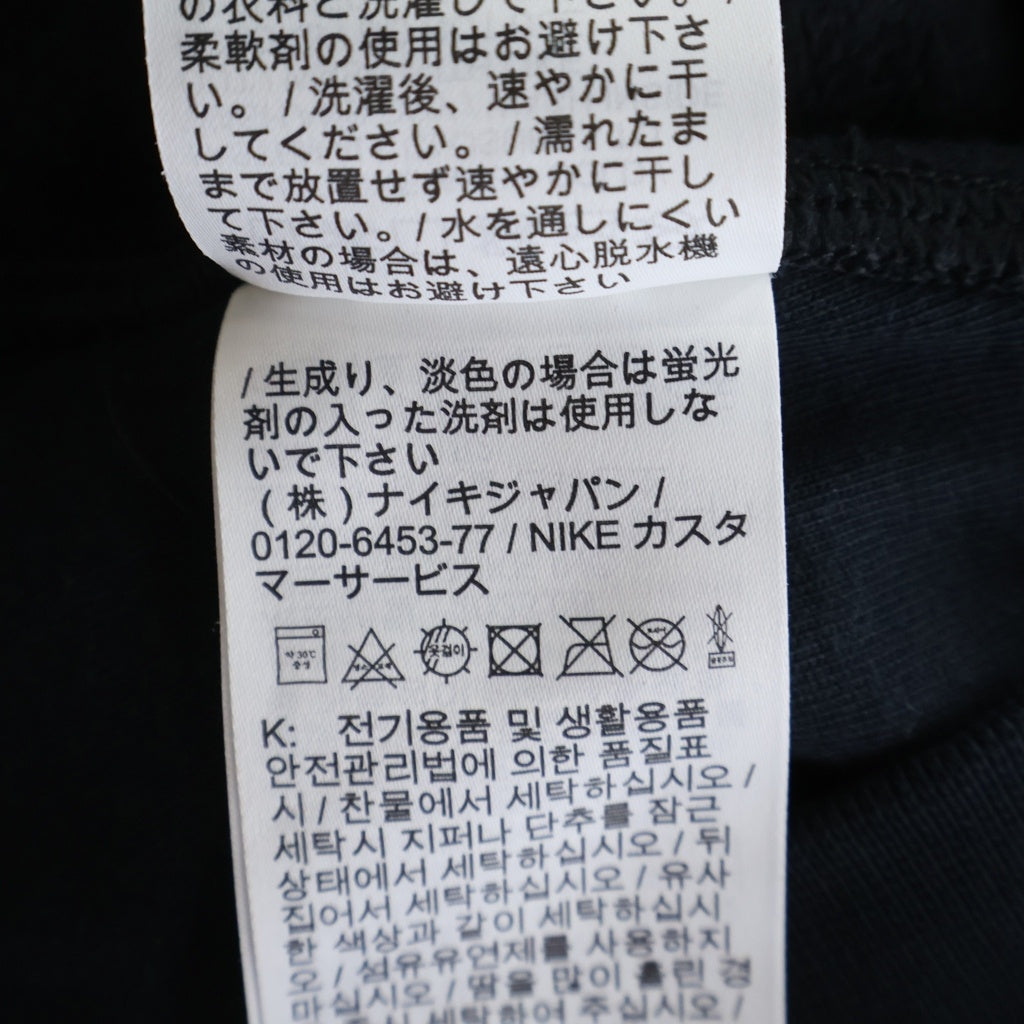 の衣料と洗濯して下さい。/
柔軟剤の使用はお避け下さ
い。/洗濯後、速やかに干
してください。/濡れたま
まで放置せず速やかに干し
て下さい。/水を通しにくい
素材の場合は、遠心脱水機
の使用はお避け下さい
/生成り、淡色の場合は蛍光
剤の入った洗剤は使用しな
いで下さい
(株)ナイキジャパン/
0120-6453-77 / NIKE カスタ
マーサービス
약 30℃
중성
옷걸이
K: 전기용품 및 생활용품
안전관리법에 의한 품질표
시 / 찬물에서 세탁하십시오 /
세탁시 지퍼나 단추를 잠근
상태에서 세탁하십시오 / 뒤
집어서 세탁하십시오 / 유사
한 색상과 같이 세탁하십시
오 / 섬유유연제를 사용하지
마십시오 / 땀을 많이 흘린 경
세탁하여 주십시오 /